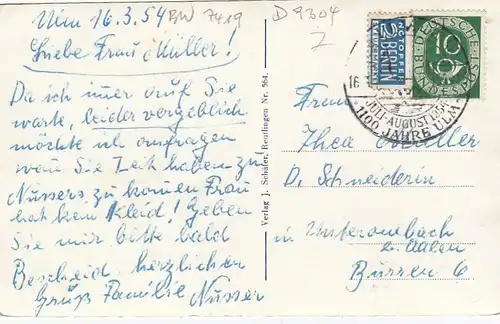 Ulm 16.3.54
BW 7419
D 9304
Z
Liebe Frau Müller!
Da ich immer auf Sie
warte, leider vergeblich
möchte ich anfragen
wan Sie Zeit haben zu
Nussers zu komen Frau
hat kein Kleid! Geben
Sie mir bitte bald
Bescheid herzlichen
Gruß Familie Nusser
Verlag J. Schäfer, Reutlingen Nr. 564.
NOTOPFER
2 BERLIN
STEUERMARKE
DEUTSCHE BUNDESPOST
10
16
JULI-AUGUST 1954
100 JAHRE ULM
Frau
Thea Müller
D. Schneiderin
in Unterrombach
b. Aalen
Burren 6